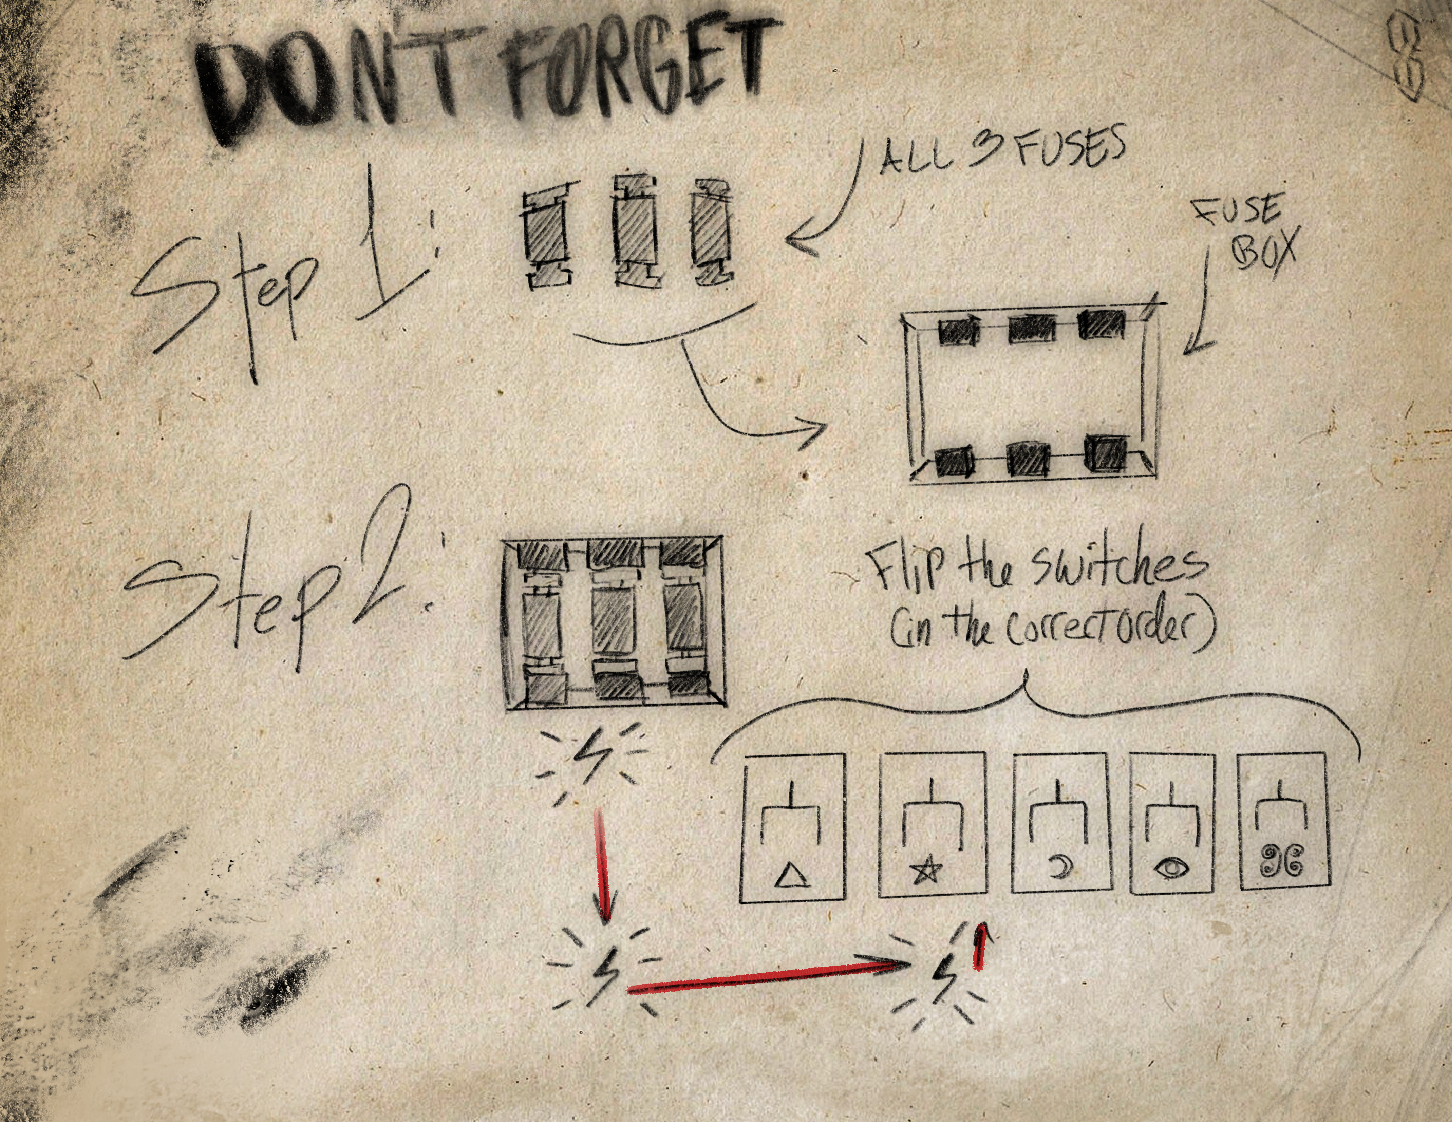 DON'T FORGET
ALL 3 FUSES
Step 1:
FUSE
BOX
Step 2:
Flip the switches
(in the correct order)